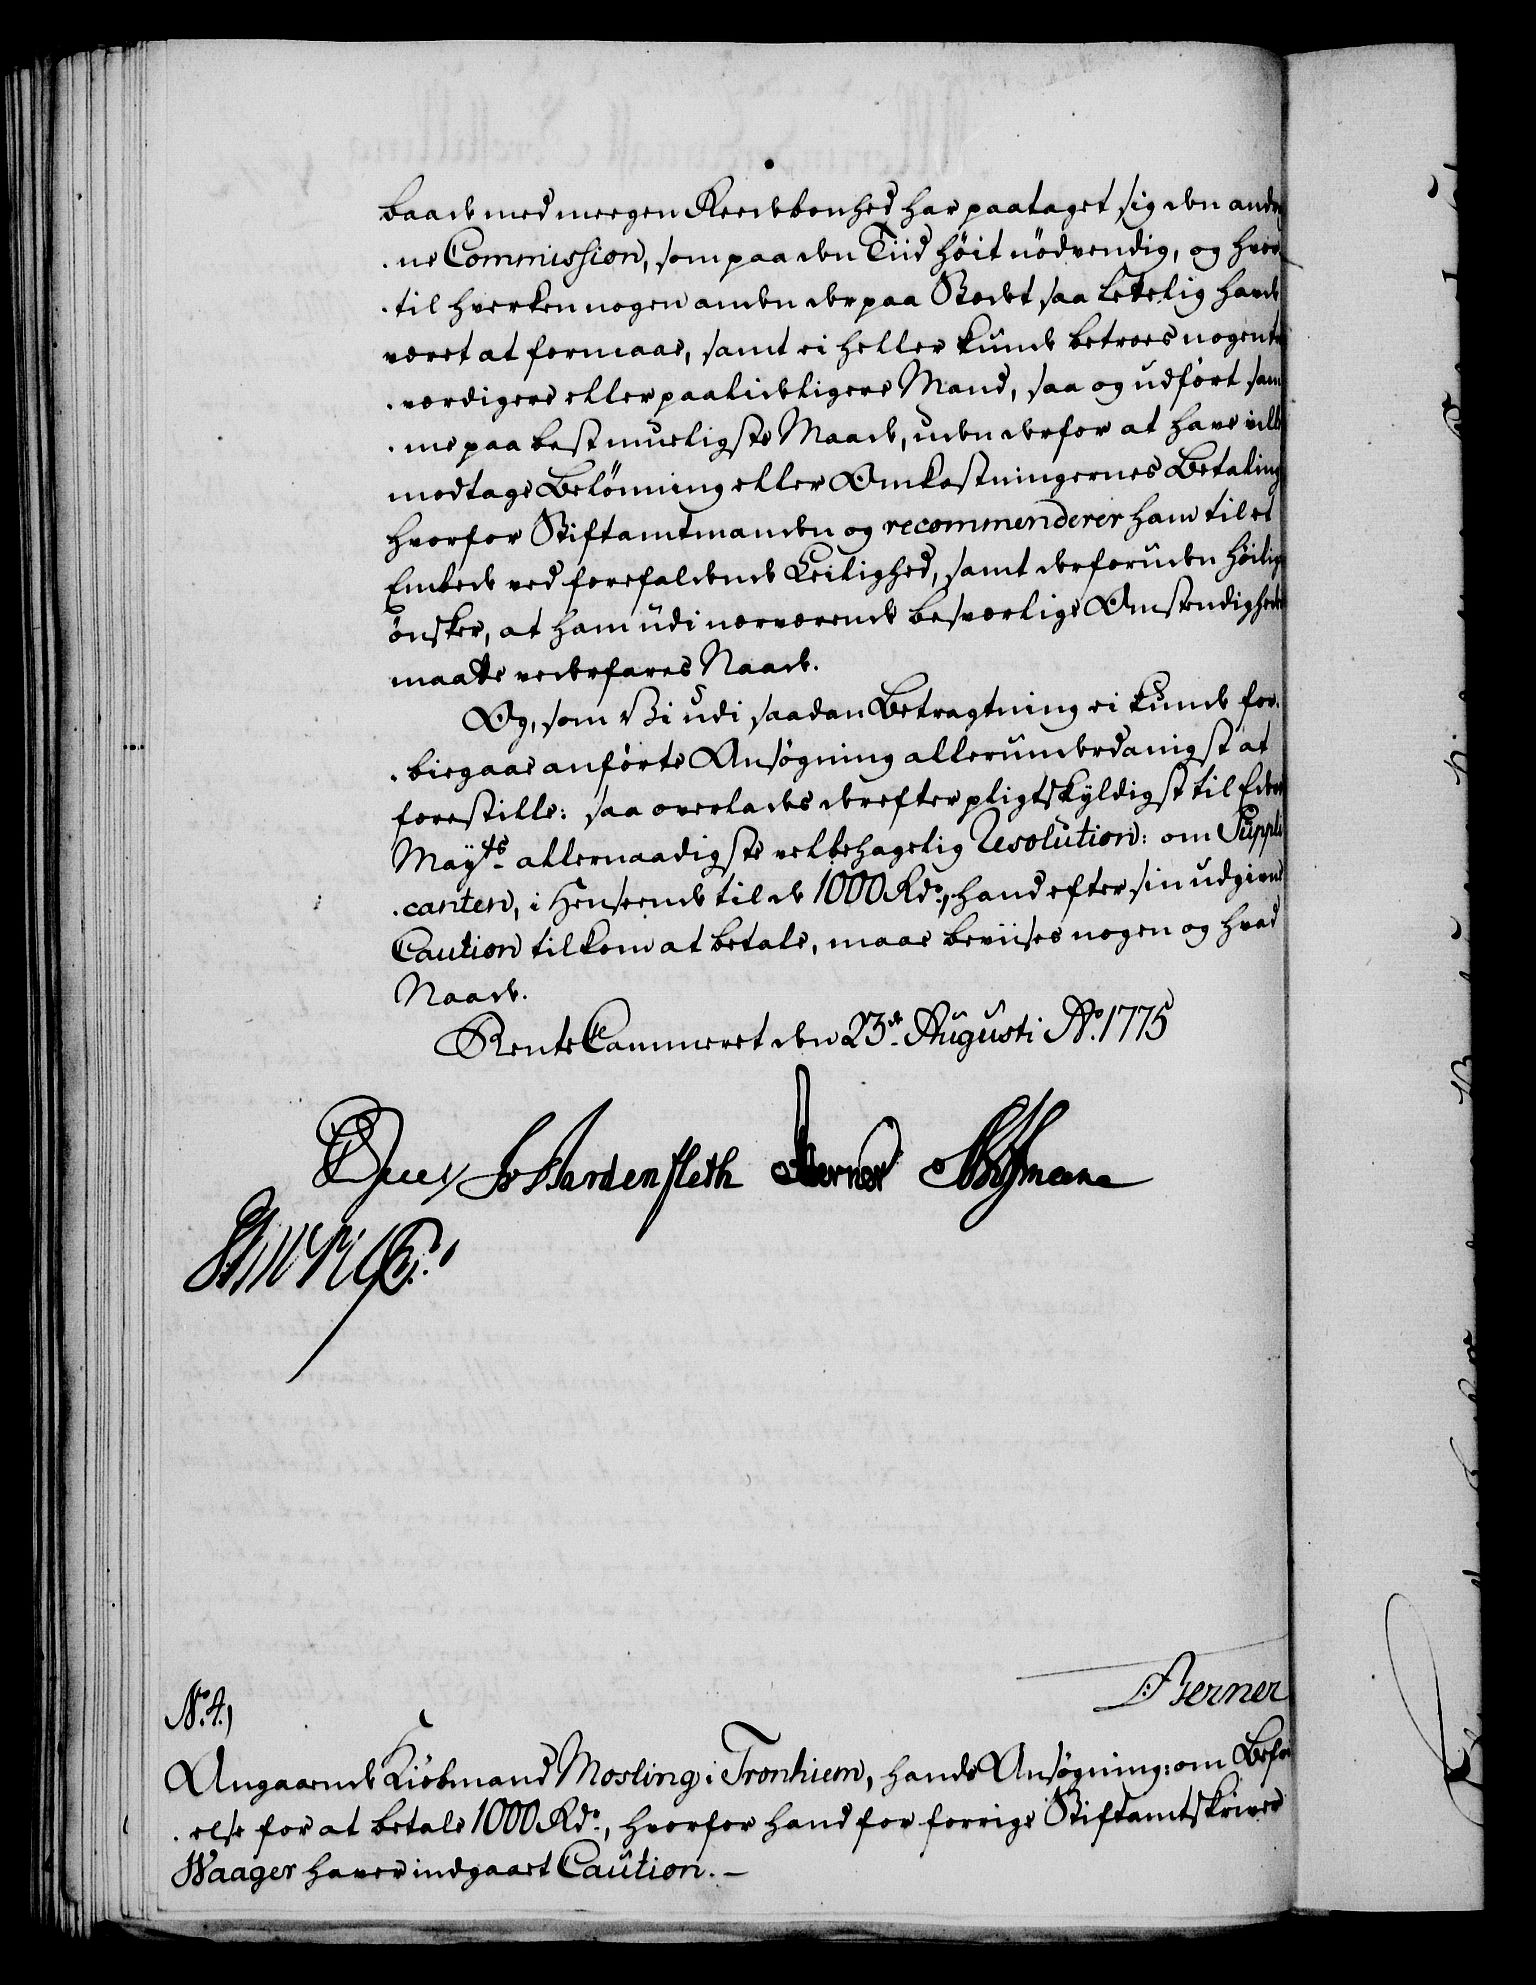 baade med megen Reedebonhed har paataget sig den andr
ne Commission, som paa den Tiid höit nödvendig, og hvor
til hverken nogen anden der paa Stedet saa letelig havde
været at formaae, samt ei heller kunde betroes nogen tro
værdigere eller paalideligere Mand, saa og udført sam
me paa best mueligste Maade, uden derfor at have vild
modtage Belönning eller Omkostningernes Betaling
hvorfor Stiftamtmanden og recommenderer ham til et
Embede ved forefaldende Leilighed, samt derforuden höilig
önsker, at ham udi nærværende besværlige Omstendighede
maatte vederfares Naade.
Og, som Vi udi saadan Betragtning ei kunde for
biegaae anförte Ansögning allerunderdanigst at
forestille: saa overlades derefter pligtskyldigst til Eders
Mayts allernaadigste velbehagelig Resolution: om Suppli
canten, i Henseende til de 1000 Rdr, hand efter sin udgivne
Caution tilkom at betale, maae beviises nogen og hvad
Naade.
RenteCammeret den 23de Augusti Ao. 1775
Hardenfleth Berner Hoffmann
Berner
No. 4.)
Angaaende Kiöbmand Mosling i Tronhiem, hands Ansögning: om Befri
else for at betale 1000 Rdr, hvorfor hand for forrige Stiftamtskriver
Waager haver indgaaet Caution. –